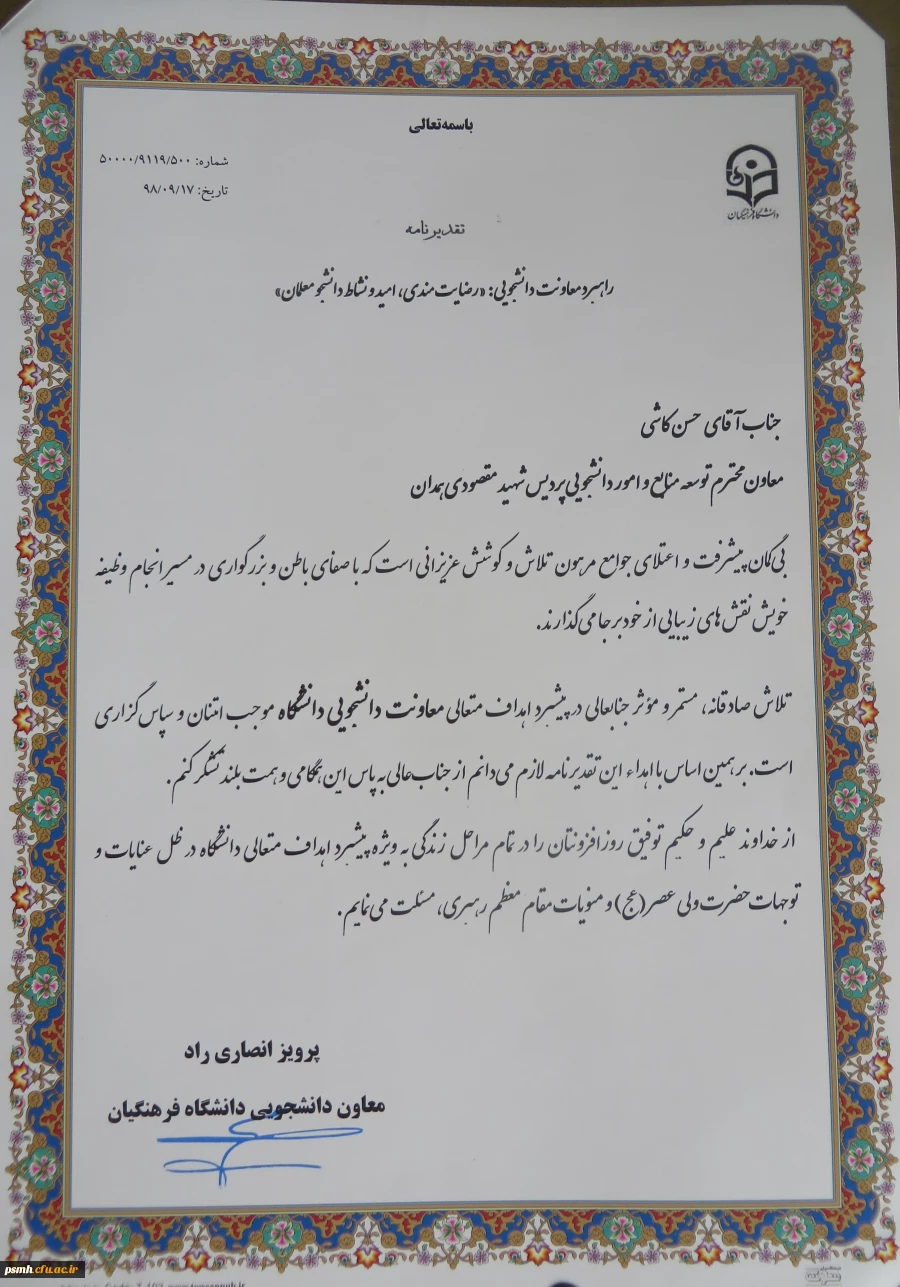 باسمه‌تعالی
شماره: ۵۰۰۰۰/۹۱۱۹/۵۰۰
تاریخ: ۹۸/۰۹/۱۷
دانشگاه فرهنگیان
تقدیرنامه
راهبرد معاونت دانشجویی: «رضایت‌مندی، امید و نشاط دانشجو معلمان»
جناب آقای حسن کاشی
معاون محترم توسعه منابع و امور دانشجویی پردیس شهید مقصودی همدان
بی‌گمان پیشرفت و اعتلای جوامع مرهون تلاش و کوشش عزیزانی است که با صفای باطن و بزرگواری در مسیر انجام وظیفه
خویش نقش‌های زیبایی از خود بر جا می‌گذارند.
تلاش صادقانه، مستمر و مؤثر جنابعالی در پیشبرد اهداف متعالی معاونت دانشجویی دانشگاه موجب امتنان و سپاس‌گزاری
است. بر همین اساس با اهداء این تقدیرنامه لازم می‌دانم از جناب‌عالی به پاس این همگامی و همت بلند تشکر کنم.
از خداوند علیم و حکیم توفیق روزافزونتان را در تمام مراحل زندگی به ویژه پیشبرد اهداف متعالی دانشگاه در ظل عنایات و
توجهات حضرت ولی عصر(عج) و منویات مقام معظم رهبری، مسئلت می‌نمایم.
پرویز انصاری راد
معاون دانشجویی دانشگاه فرهنگیان
psmh.cfu.ac.ir